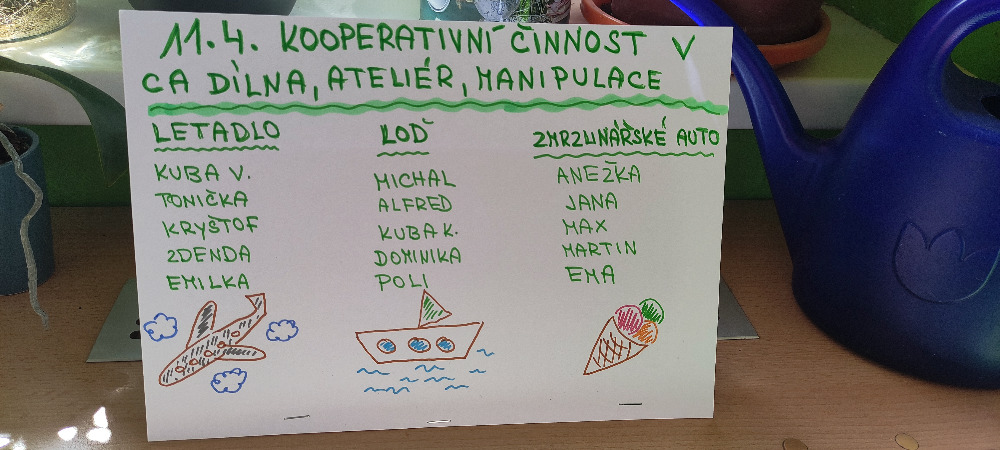 11.4. KOOPERATIVNÍ ČINNOST V
CA DÍLNA, ATELIÉR, MANIPULACE
LETADLO
KUBA V.
TONIČKA
KRYŠTOF
ZDENDA
EMILKA
LOĎ
MICHAL
ALFRED
KUBA K.
DOMINIKA
POLI
ZMRZLINÁŘSKÉ AUTO
ANEŽKA
JANA
MAX
MARTIN
EMA